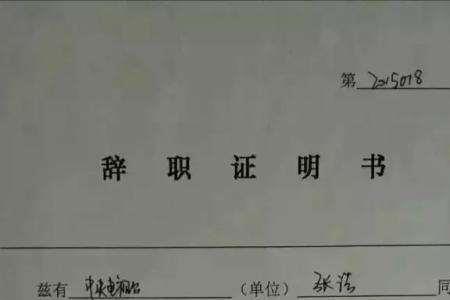 第 2015018
辞职证明书
兹有 中央电视台 (单位) 张浩 同